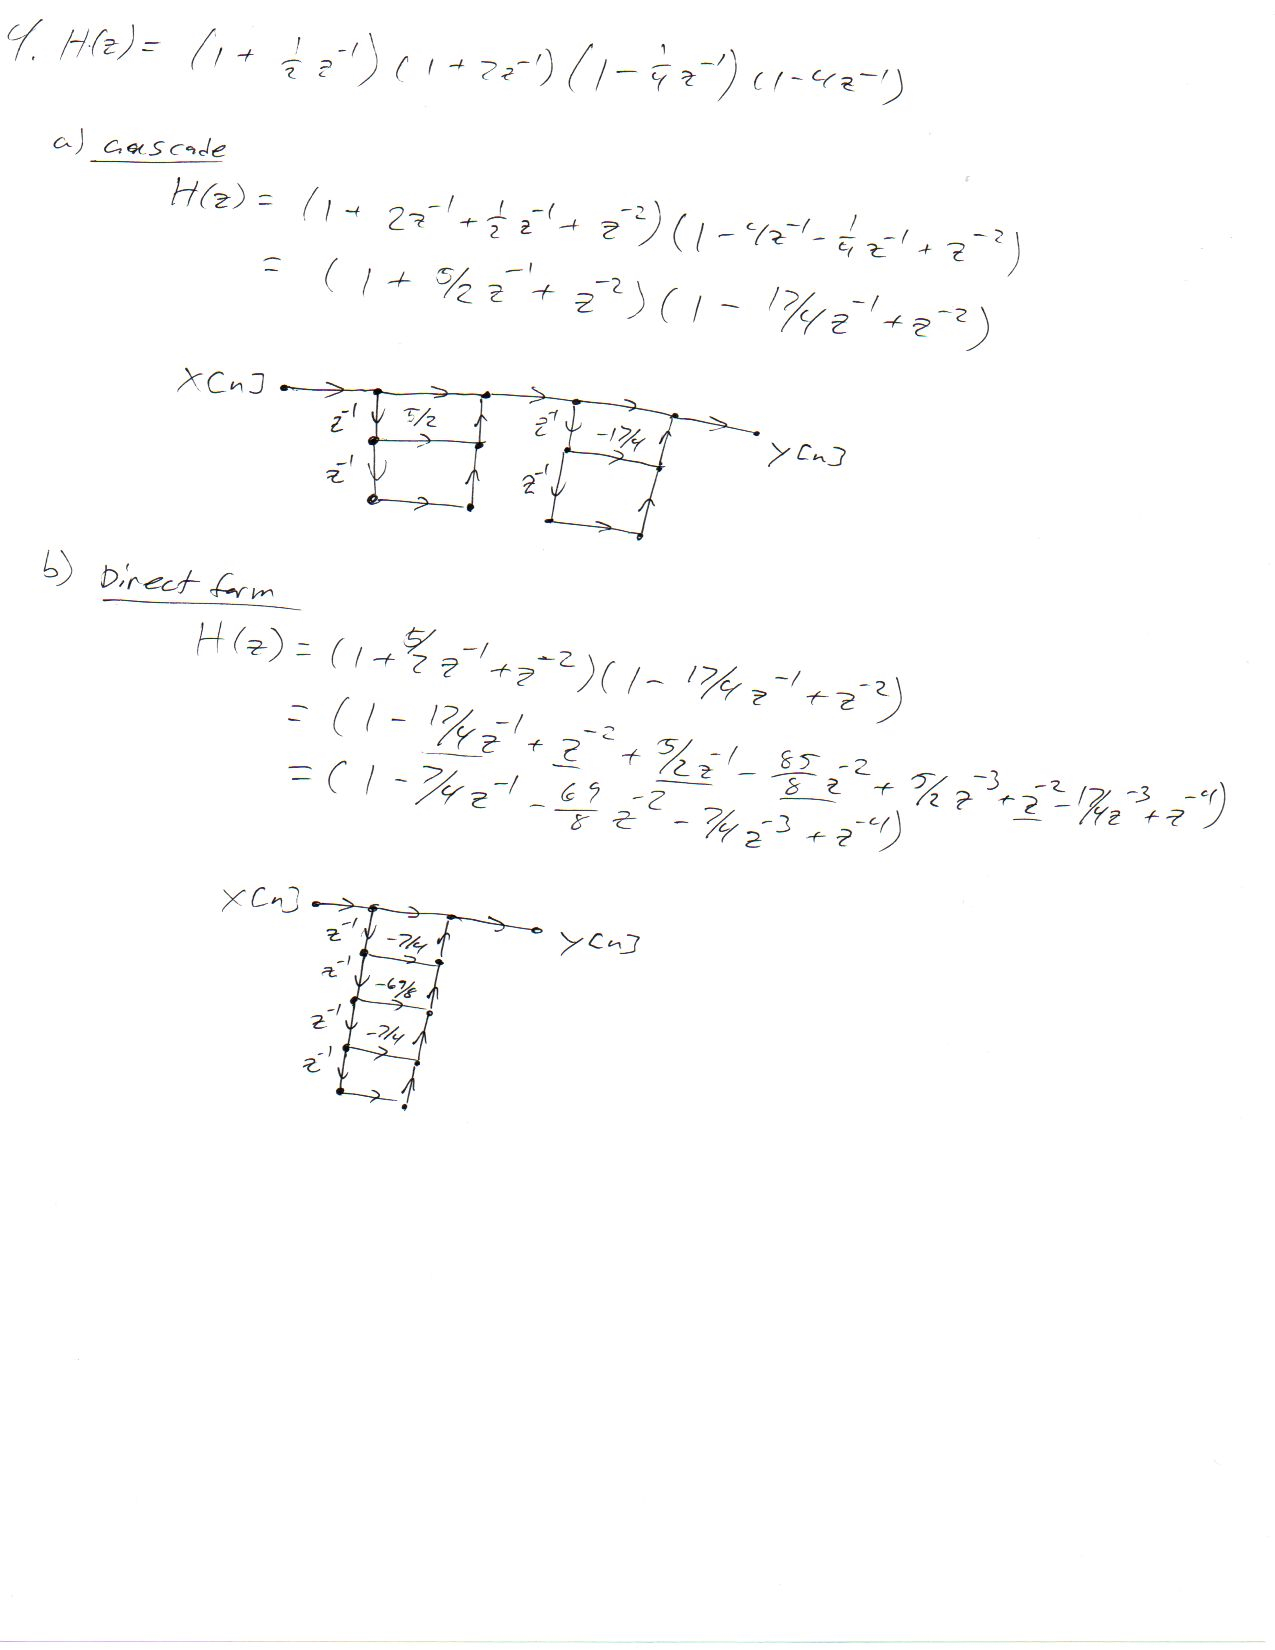 4. H(z) = (1 + 1/2 z⁻¹)(1 + 2z⁻¹)(1 - 1/4 z⁻¹)(1 - 4z⁻¹)
a) cascade
H(z) = (1 + 2z⁻¹ + 1/2 z⁻¹ + z⁻²)(1 - 4z⁻¹ - 1/4 z⁻¹ + z⁻²)
= (1 + 5/2 z⁻¹ + z⁻²)(1 - 17/4 z⁻¹ + z⁻²)
X[n]
z⁻¹ 5/2 z⁻¹ -17/4 Y[n]
z⁻¹ z⁻¹
b) Direct form
H(z) = (1 + 5/2 z⁻¹ + z⁻²)(1 - 17/4 z⁻¹ + z⁻²)
= (1 - 17/4 z⁻¹ + z⁻² + 5/2 z⁻¹ - 85/8 z⁻² + 5/2 z⁻³ + z⁻² - 17/4 z⁻³ + z⁻⁴)
= (1 - 7/4 z⁻¹ - 69/8 z⁻² - 7/4 z⁻³ + z⁻⁴)
X[n] Y[n]
z⁻¹ -7/4
z⁻¹ -69/8
z⁻¹ -7/4
z⁻¹